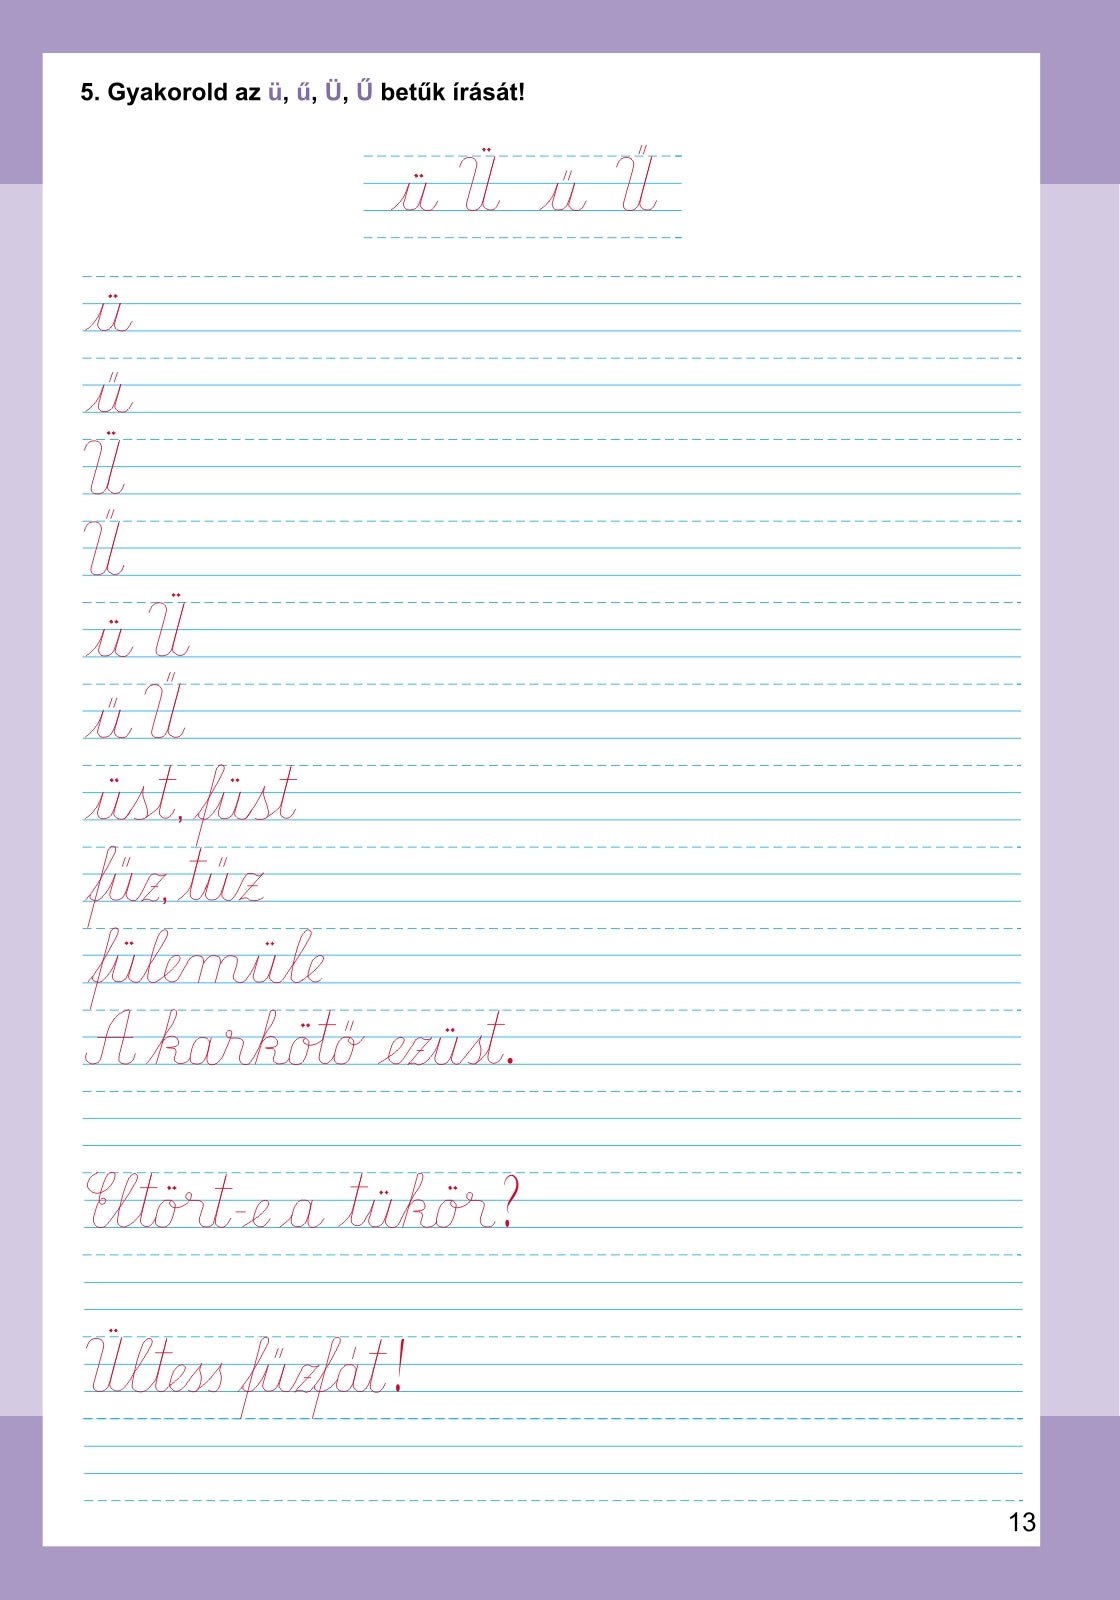 5. Gyakorold az ü, ű, Ü, Ű betűk írását!
ü Ü ű Ű
ü
ű
Ü
Ű
ü Ü
ű Ű
üst, füst
fűz, tűz
fülemüle
A karkötő ezüst.
Eltört-e a tükör?
Ültess fűzfát!
13